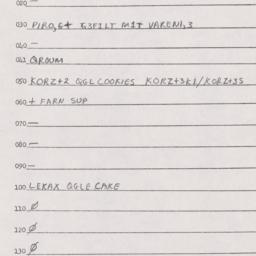 020 —
030 PIRO,6+ G3FILT M1T VARENI,3
040 —
041 QROUM
050 KORZ+2 QGL COOKIES KORZ+3K1/KORZ+35
060 + FARN SUP
070 —
080 —
090 —
100 LEKAX QGLE CAKE
110 ø
120 ø
130 ø